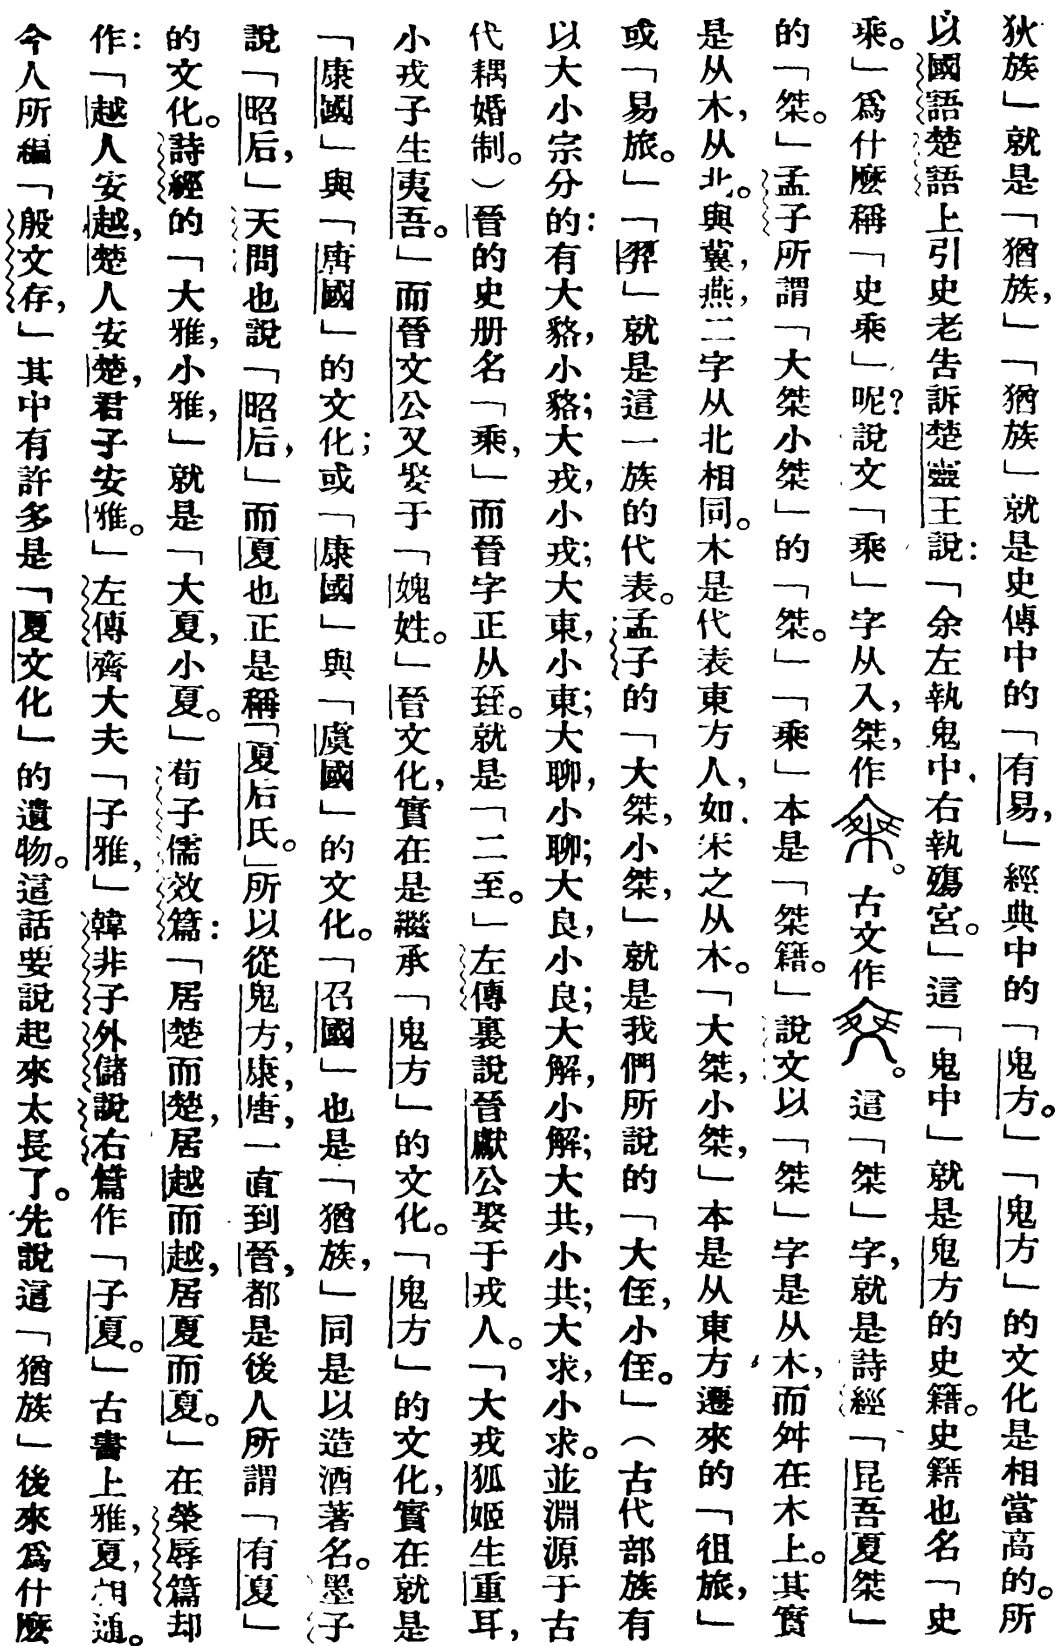 狄族」就是「猶族，」「猶族」就是史傳中的「有易，」經典中的「鬼方。」「鬼方」的文化是相當高的。所
以國語楚語上引史老告訴楚靈王說：「余左執鬼中，右執殤宮。」這「鬼中」就是鬼方的史籍。史籍也名「史
乘。」爲什麼稱「史乘」呢？說文「乘」字从入，桀，作。古文作。這「桀」字，就是詩經「昆吾夏桀」
的「桀。」孟子所謂「大桀小桀」的「桀。」「乘」本是「桀籍。」說文以「桀」字是从木，而舛在木上。其實
是从木，从北。與冀，燕，二字从北相同。木是代表東方人，如宋之从木。「大桀，小桀，」本是从東方遷來的「徂旅，」
或「易旅。」「羿」就是這一族的代表。孟子的「大桀，小桀，」就是我們所說的「大侄，小侄。」（古代部族有
以大小宗分的：有大貉，小貉；大戎，小戎；大東，小東；大聊，小聊；大良，小良；大解，小解；大共，小共；大求，小求。並淵源于古
代耦婚制。）晉的史册名「乘，」而晉字正从臸。就是「二至。」左傳裏說晉獻公娶于戎人。「大戎狐姬生重耳，
小戎子生夷吾。」而晉文公又娶于「媿姓。」晉文化，實在是繼承「鬼方」的文化。「鬼方」的文化，實在就是
「康國」與「唐國」的文化；或「康國」與「虞國」的文化。「召國」也是「猶族，」同是以造酒著名。墨子
說「昭后，」天問也說「昭后，」而夏也正是稱「夏后氏。」所以從鬼方，康，唐，一直到晉，都是後人所謂「有夏」
的文化。詩經的「大雅，小雅，」就是「大夏，小夏。」荀子儒效篇：「居楚而楚，居越而越，居夏而夏。」在榮辱篇却
作：「越人安越，楚人安楚，君子安雅。」左傳齊大夫「子雅，」韓非子外儲說右篇作「子夏。」古書上雅，夏，相通。
今人所編「殷文存，」其中有許多是「夏文化」的遺物。這話要說起來太長了。先說這「猶族」後來爲什麼